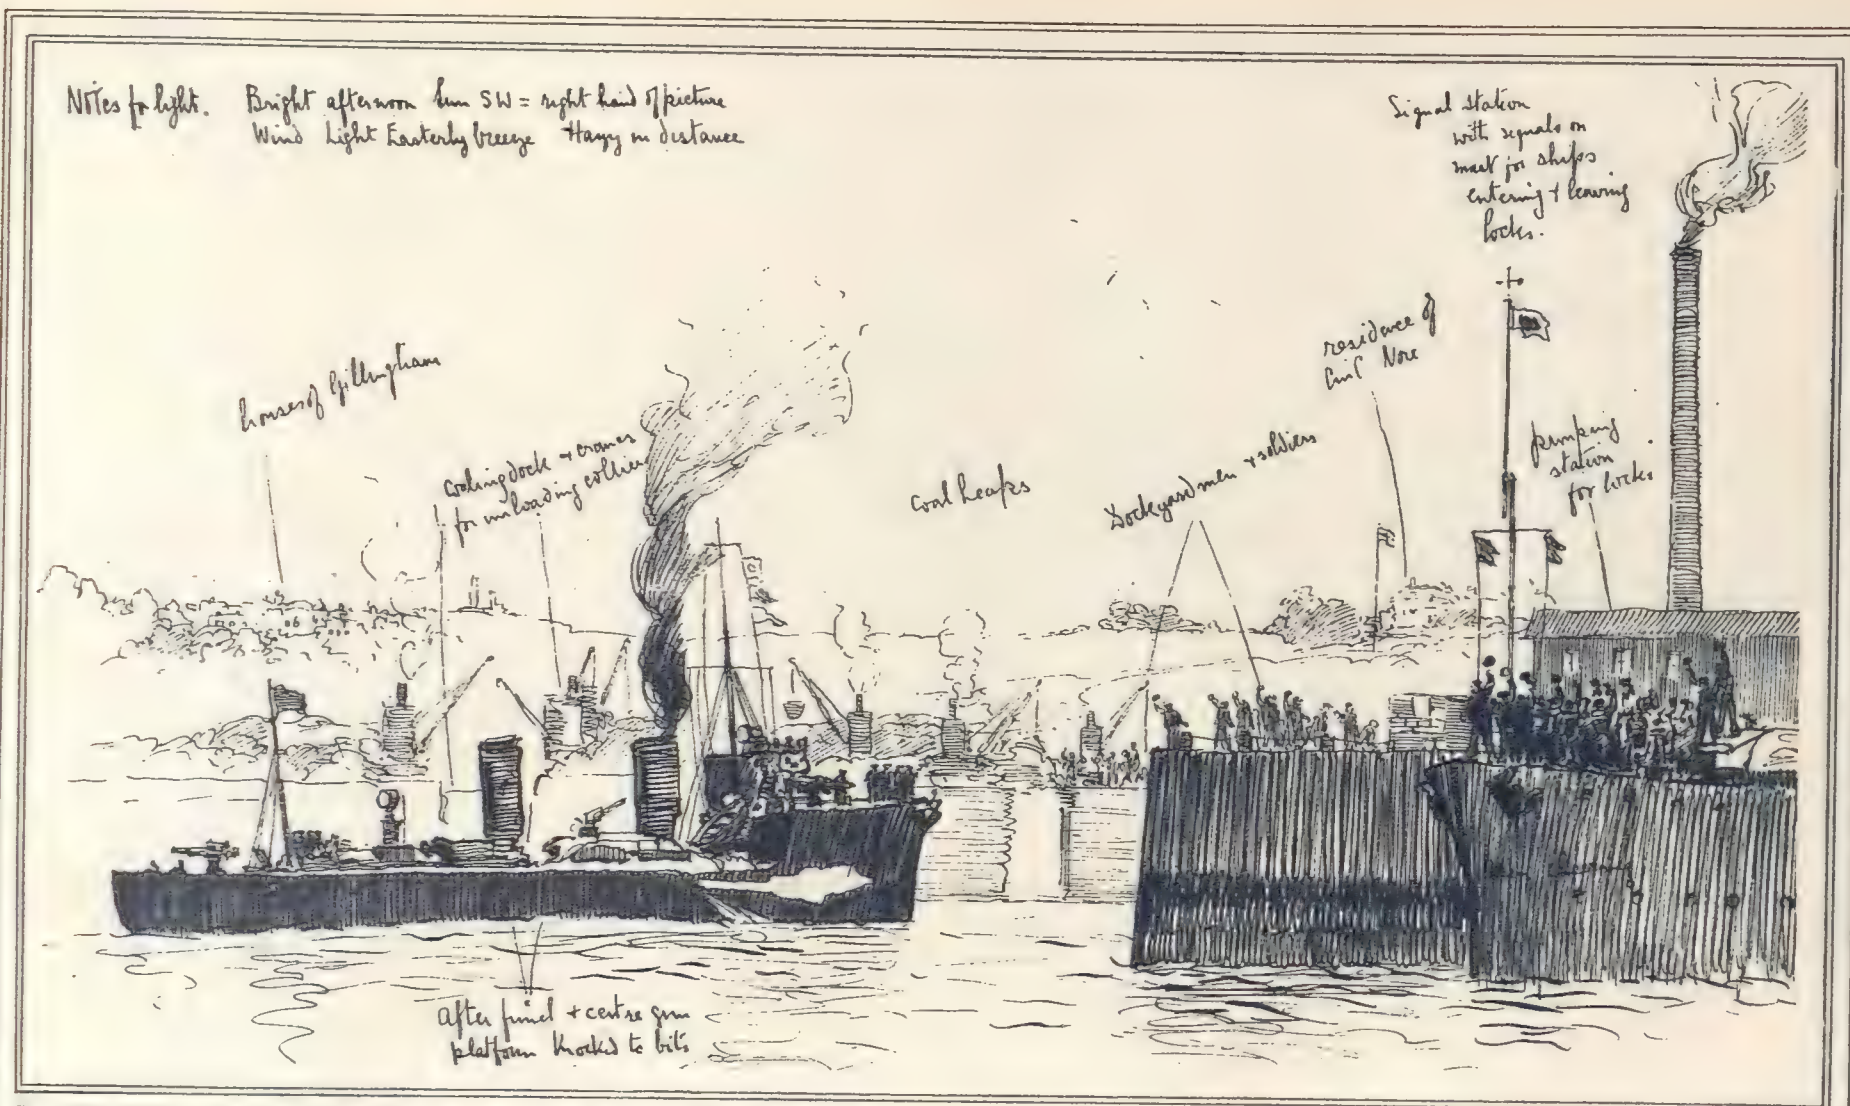 Notes for light. Bright afternoon Sun SW = right hand of picture
Wind Light Easterly breeze Hazy in distance
Signal station
with signals on
mast for ships
entering + leaving
locks.
houses of Gillingham
coaling dock + cranes
for unloading colliers
coal heaps
Dockyard men + soldiers
residence of
CinC Nore
pumping
station
for locks
After funnel + centre gun
platform knocked to bits